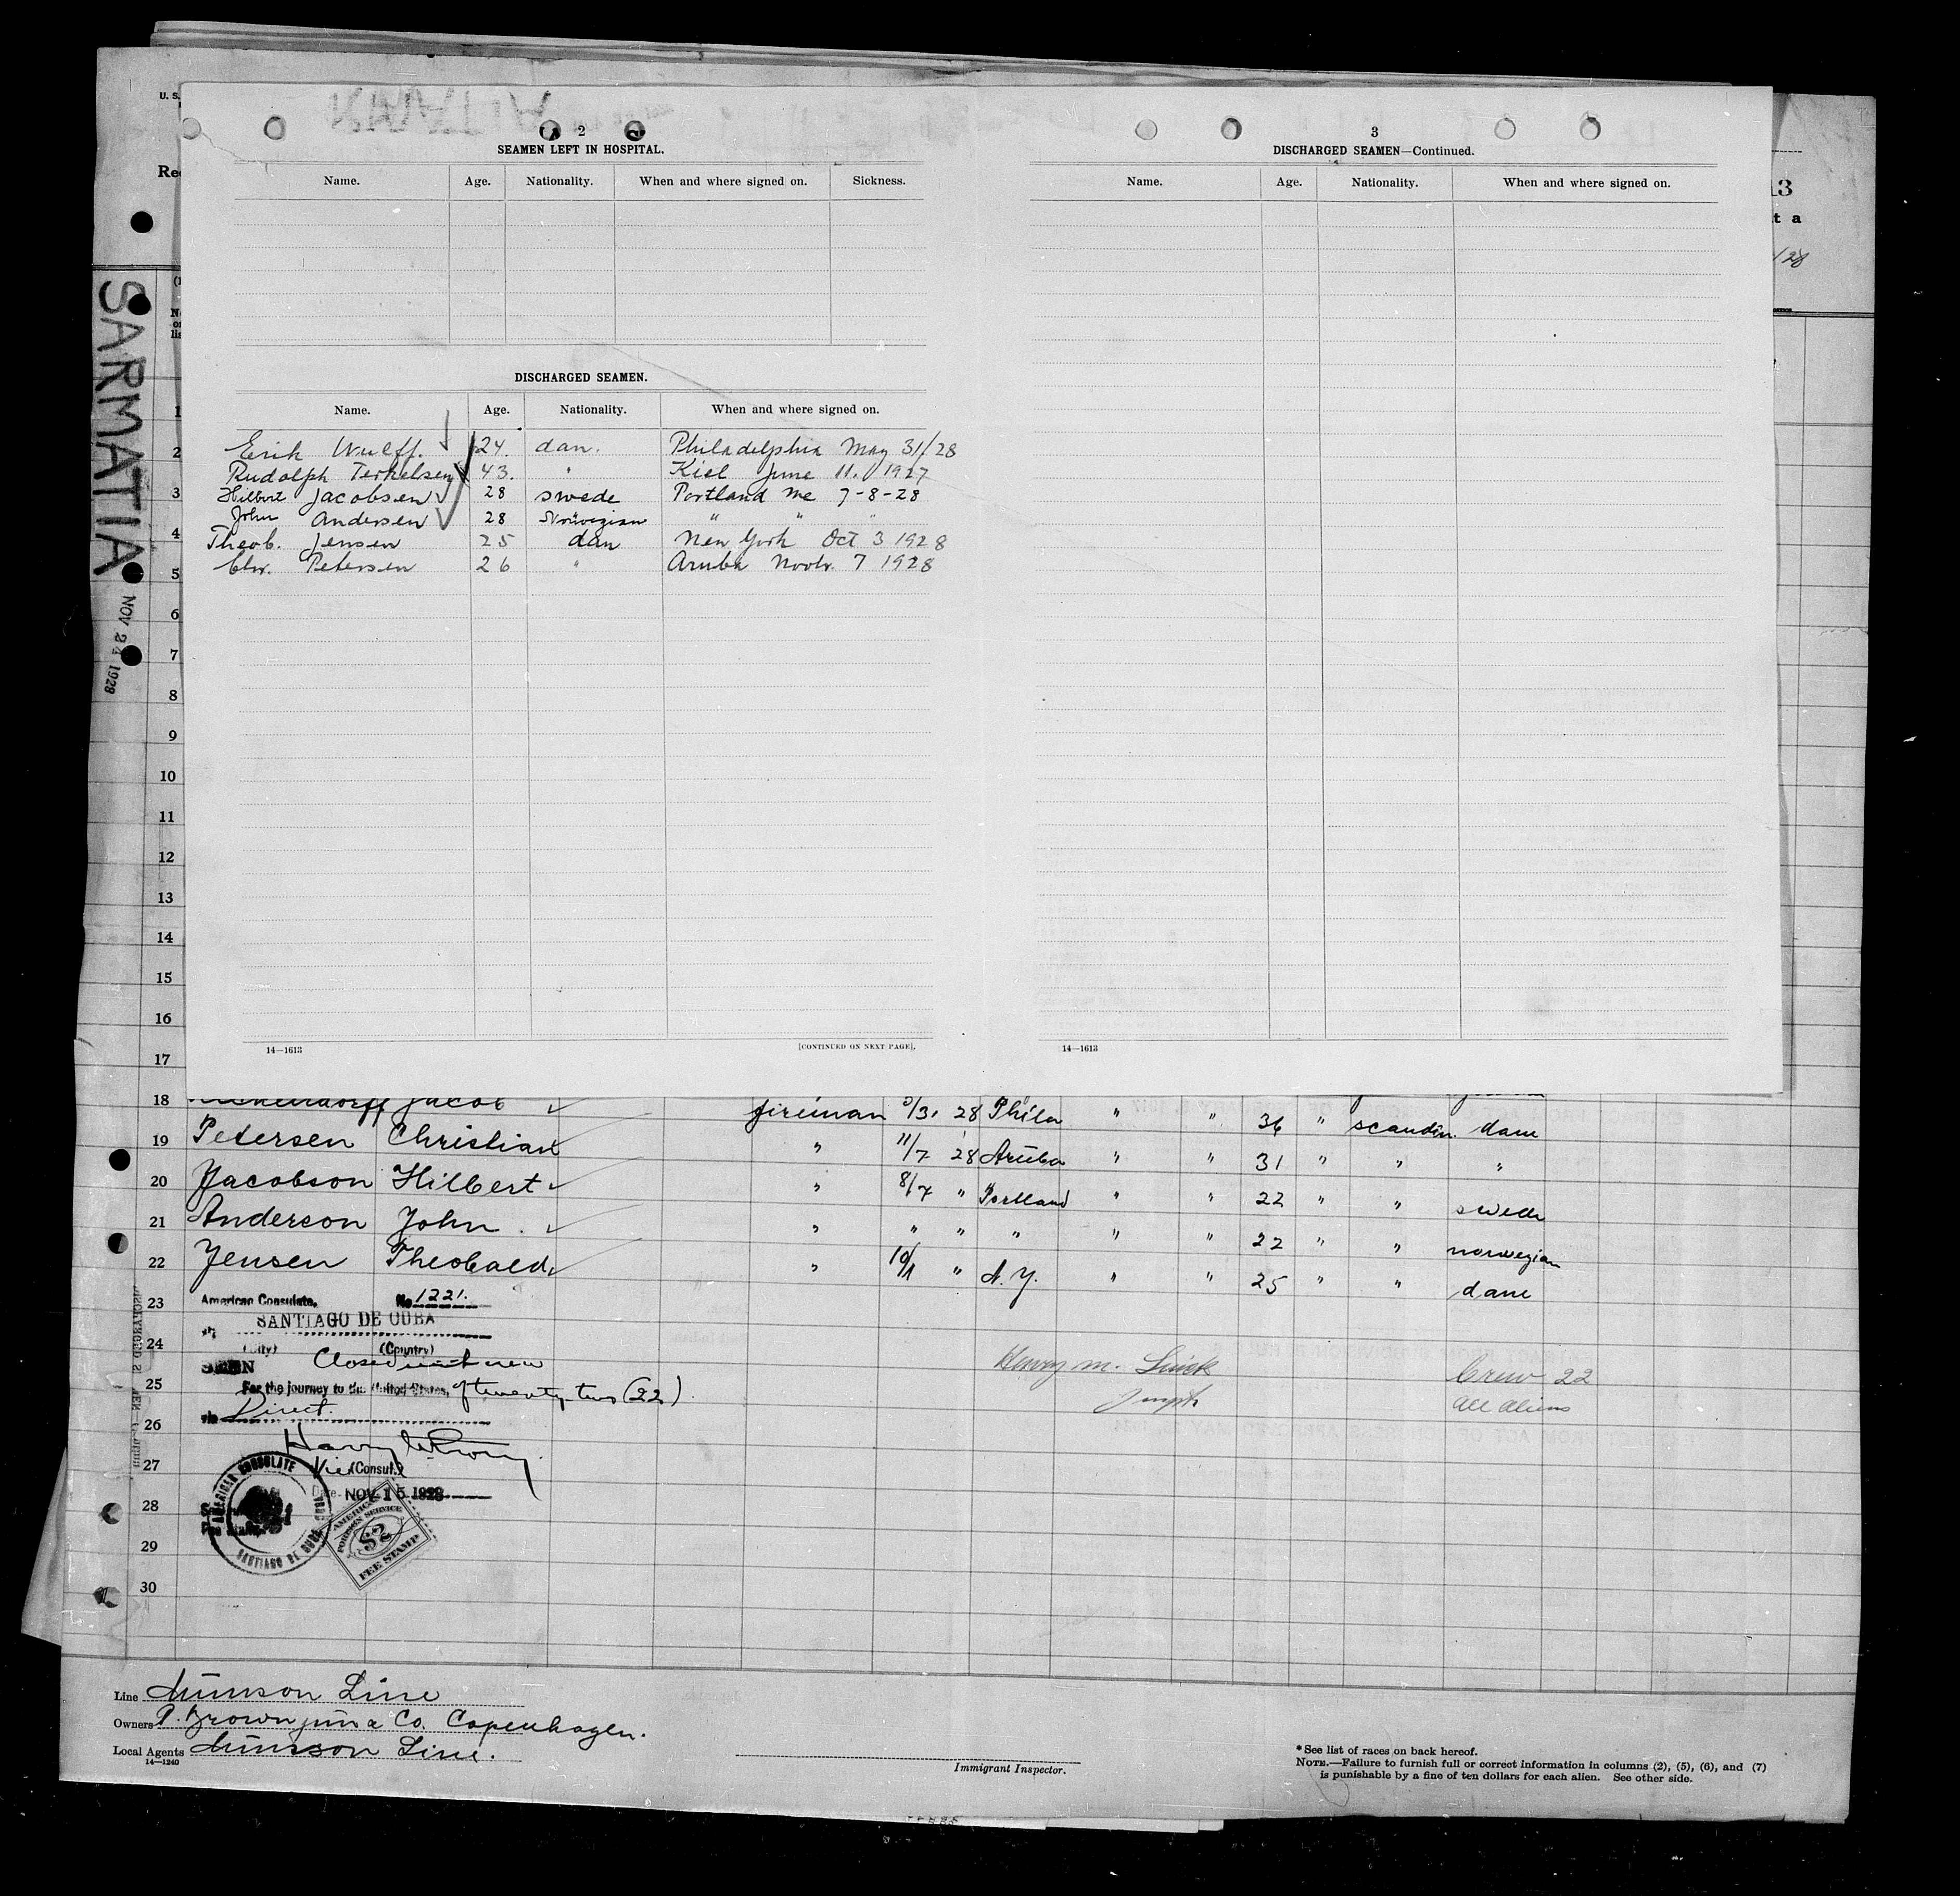 U. S.
SARMATIA
NOV 24 1928
2
SEAMEN LEFT IN HOSPITAL.
Name. Age. Nationality. When and where signed on. Sickness.
DISCHARGED SEAMEN.
Name. Age. Nationality. When and where signed on.
Erik Wulff. 24. dan. Philadelphia May 31/28
Rudolph Terkelsen 43. " Kiel June 11. 1927
Hilbert Jacobsen 28 swede Portland Me 7-8-28
John Andersen 28 Norwegian " " "
Theob. Jensen 25 dan New York Oct 3 1928
Chr. Petersen 26 " Aruba Novbr. 7 1928
14—1613 [CONTINUED ON NEXT PAGE].
3
DISCHARGED SEAMEN—Continued.
Name. Age. Nationality. When and where signed on.
14—1613
13
t a
/28
1
2
3
4
5
6
7
8
9
10
11
12
13
14
15
16
17
18 Jacob fireman /31 28 Phila " " 36 " scandin. dane
19 Petersen Christian " 11/7 28 Aruba " " 31 " " "
20 Jacobson Hilbert " 8/7 " Portland " " 22 " " swede
21 Anderson John " " " " " " 22 " " norwegian
22 Jensen Theobald " 10/1 " N.Y. " " 25 " " dane
23 American Consulate, No 1221.
SANTIAGO DE CUBA
24 (City) (Country)
SEEN Closed crew
25 For the journey to the United States, of twenty-two (22)
via Direct.
26
27 Vice (Consul)
Date NOV 15 1928
28
29
30
AMERICAN CONSULATE
SANTIAGO DE CUBA
AMERICAN FOREIGN SERVICE
$2
FEE STAMP
Henry M.
Crew 22
All aliens
Line Munson Line
Owners A. Brown jun & Co. Copenhagen.
Local Agents Munson Line.
14—1240
Immigrant Inspector.
* See list of races on back hereof.
NOTE.—Failure to furnish full or correct information in columns (2), (5), (6), and (7)
is punishable by a fine of ten dollars for each alien. See other side.